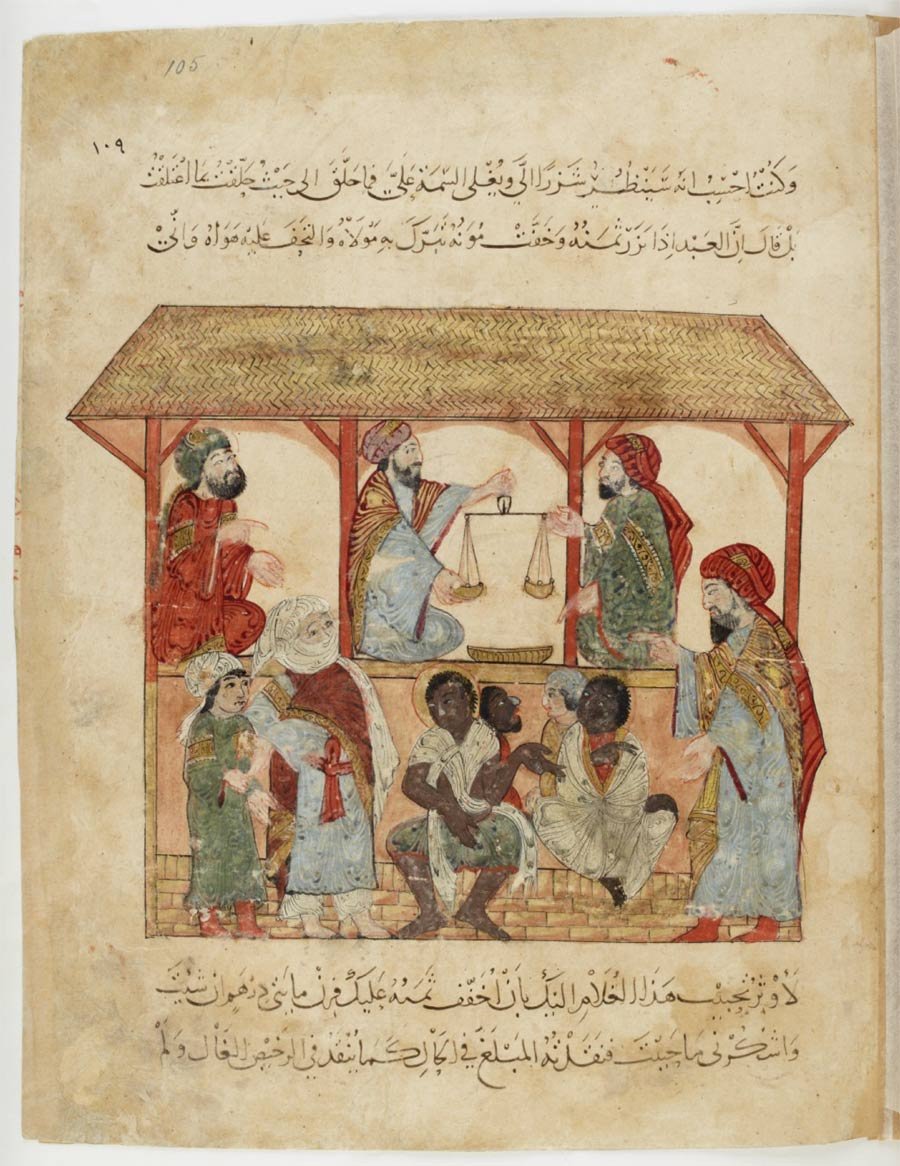 105
١٠٩
وَكُنْتُ اَحْسِبُ انه سَيَنْظُرُ شَزَرًا الَيَّ وَيُغْلى السّيمَةَ عَلَيَّ فما حَلَّقَ الى حَيْثُ حَلَّقْتُ بما اعْتَلَقْتُ
بَلْ قالَ انَّ العَبْدَ اِذَا نَزُرَ ثمنُهُ وَخَفّتْ مُؤنُهُ تَبَرَّكَ بِهِ مَوْلَاهُ وَالتحَفَ عليهِ هَوَاهُ وَانّي
لَأُوثِرُ تحْبِيبَ هَذا الغُلَامِ اليْكَ بأَنْ اُخَفِّفَ ثَمنَهُ عليكَ فزِنْ مايَتي دِرْهَمٍ ان شِيتَ
وَاشْكُرْني مَا حَيِيتَ فنَقَدْتُهُ المَبْلَغَ في الحَالِ كمَا يُنْقَدُ في الرّخِيصِ الغَالِ وَلَمْ